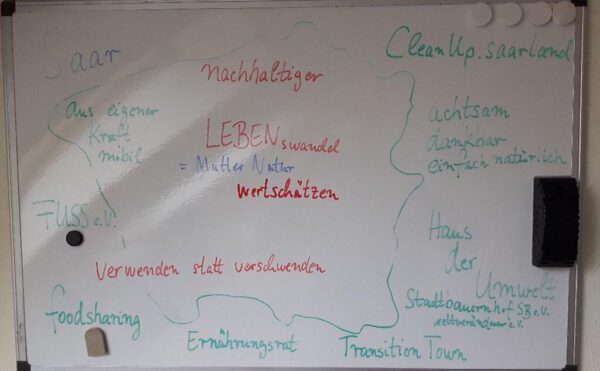 Saar
CleanUp.saarland
nachhaltiger
aus eigener
Kraft
mibil
achtsam
dankbar
einfach natürlich
LEBENswandel
= Mutter Natur
wertschätzen
FUSS e.V.
Haus
der
Umwelt
Verwenden statt verschwenden
Stadtbauernhof SB e.V.
weltveränderer e.V.
foodsharing
Ernährungsrat
Transition Town